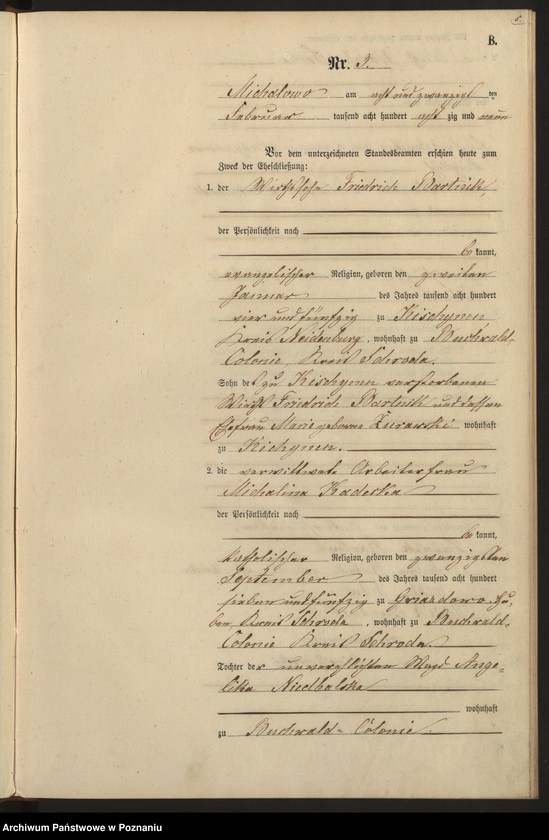 5.
B.
Nr. 3.
Michalowo am acht und zwanzigsten
Februar tausend acht hundert acht zig und neun
Vor dem unterzeichneten Standesbeamten erschien heute zum
Zweck der Eheschließung:
1. der Wirthssohn Friedrich Bartnik,
der Persönlichkeit nach
be kannt,
evangelischer Religion, geboren den zweiten
Januar des Jahres tausend acht hundert
vier und fünfzig zu
Kreis Neidenburg, wohnhaft zu Buchwald-
Colonie, Kreis Schroda.
Sohn des zu verstorbenen
Wirth Friedrich Bartnik und dessen
Ehefrau Marie geborene Zurawski wohnhaft
zu
2. die verwittwete Arbeiterfrau
Michalina Kadeska
der Persönlichkeit nach
be kannt,
katholischer Religion, geboren den zwanzigsten
September des Jahres tausend acht hundert
sieben und fünfzig zu Hu-
ben, Kreis Schroda, wohnhaft zu Buchwald-
Colonie Kreis Schroda.
Tochter der unverehlichten Magd Ange-
lika Niedbalska
wohnhaft
zu Buchwald-Colonie.
Archiwum Państwowe w Poznaniu